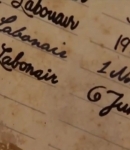 Labonair 19
Labonair
Labonair 1 Ma
6 Jun